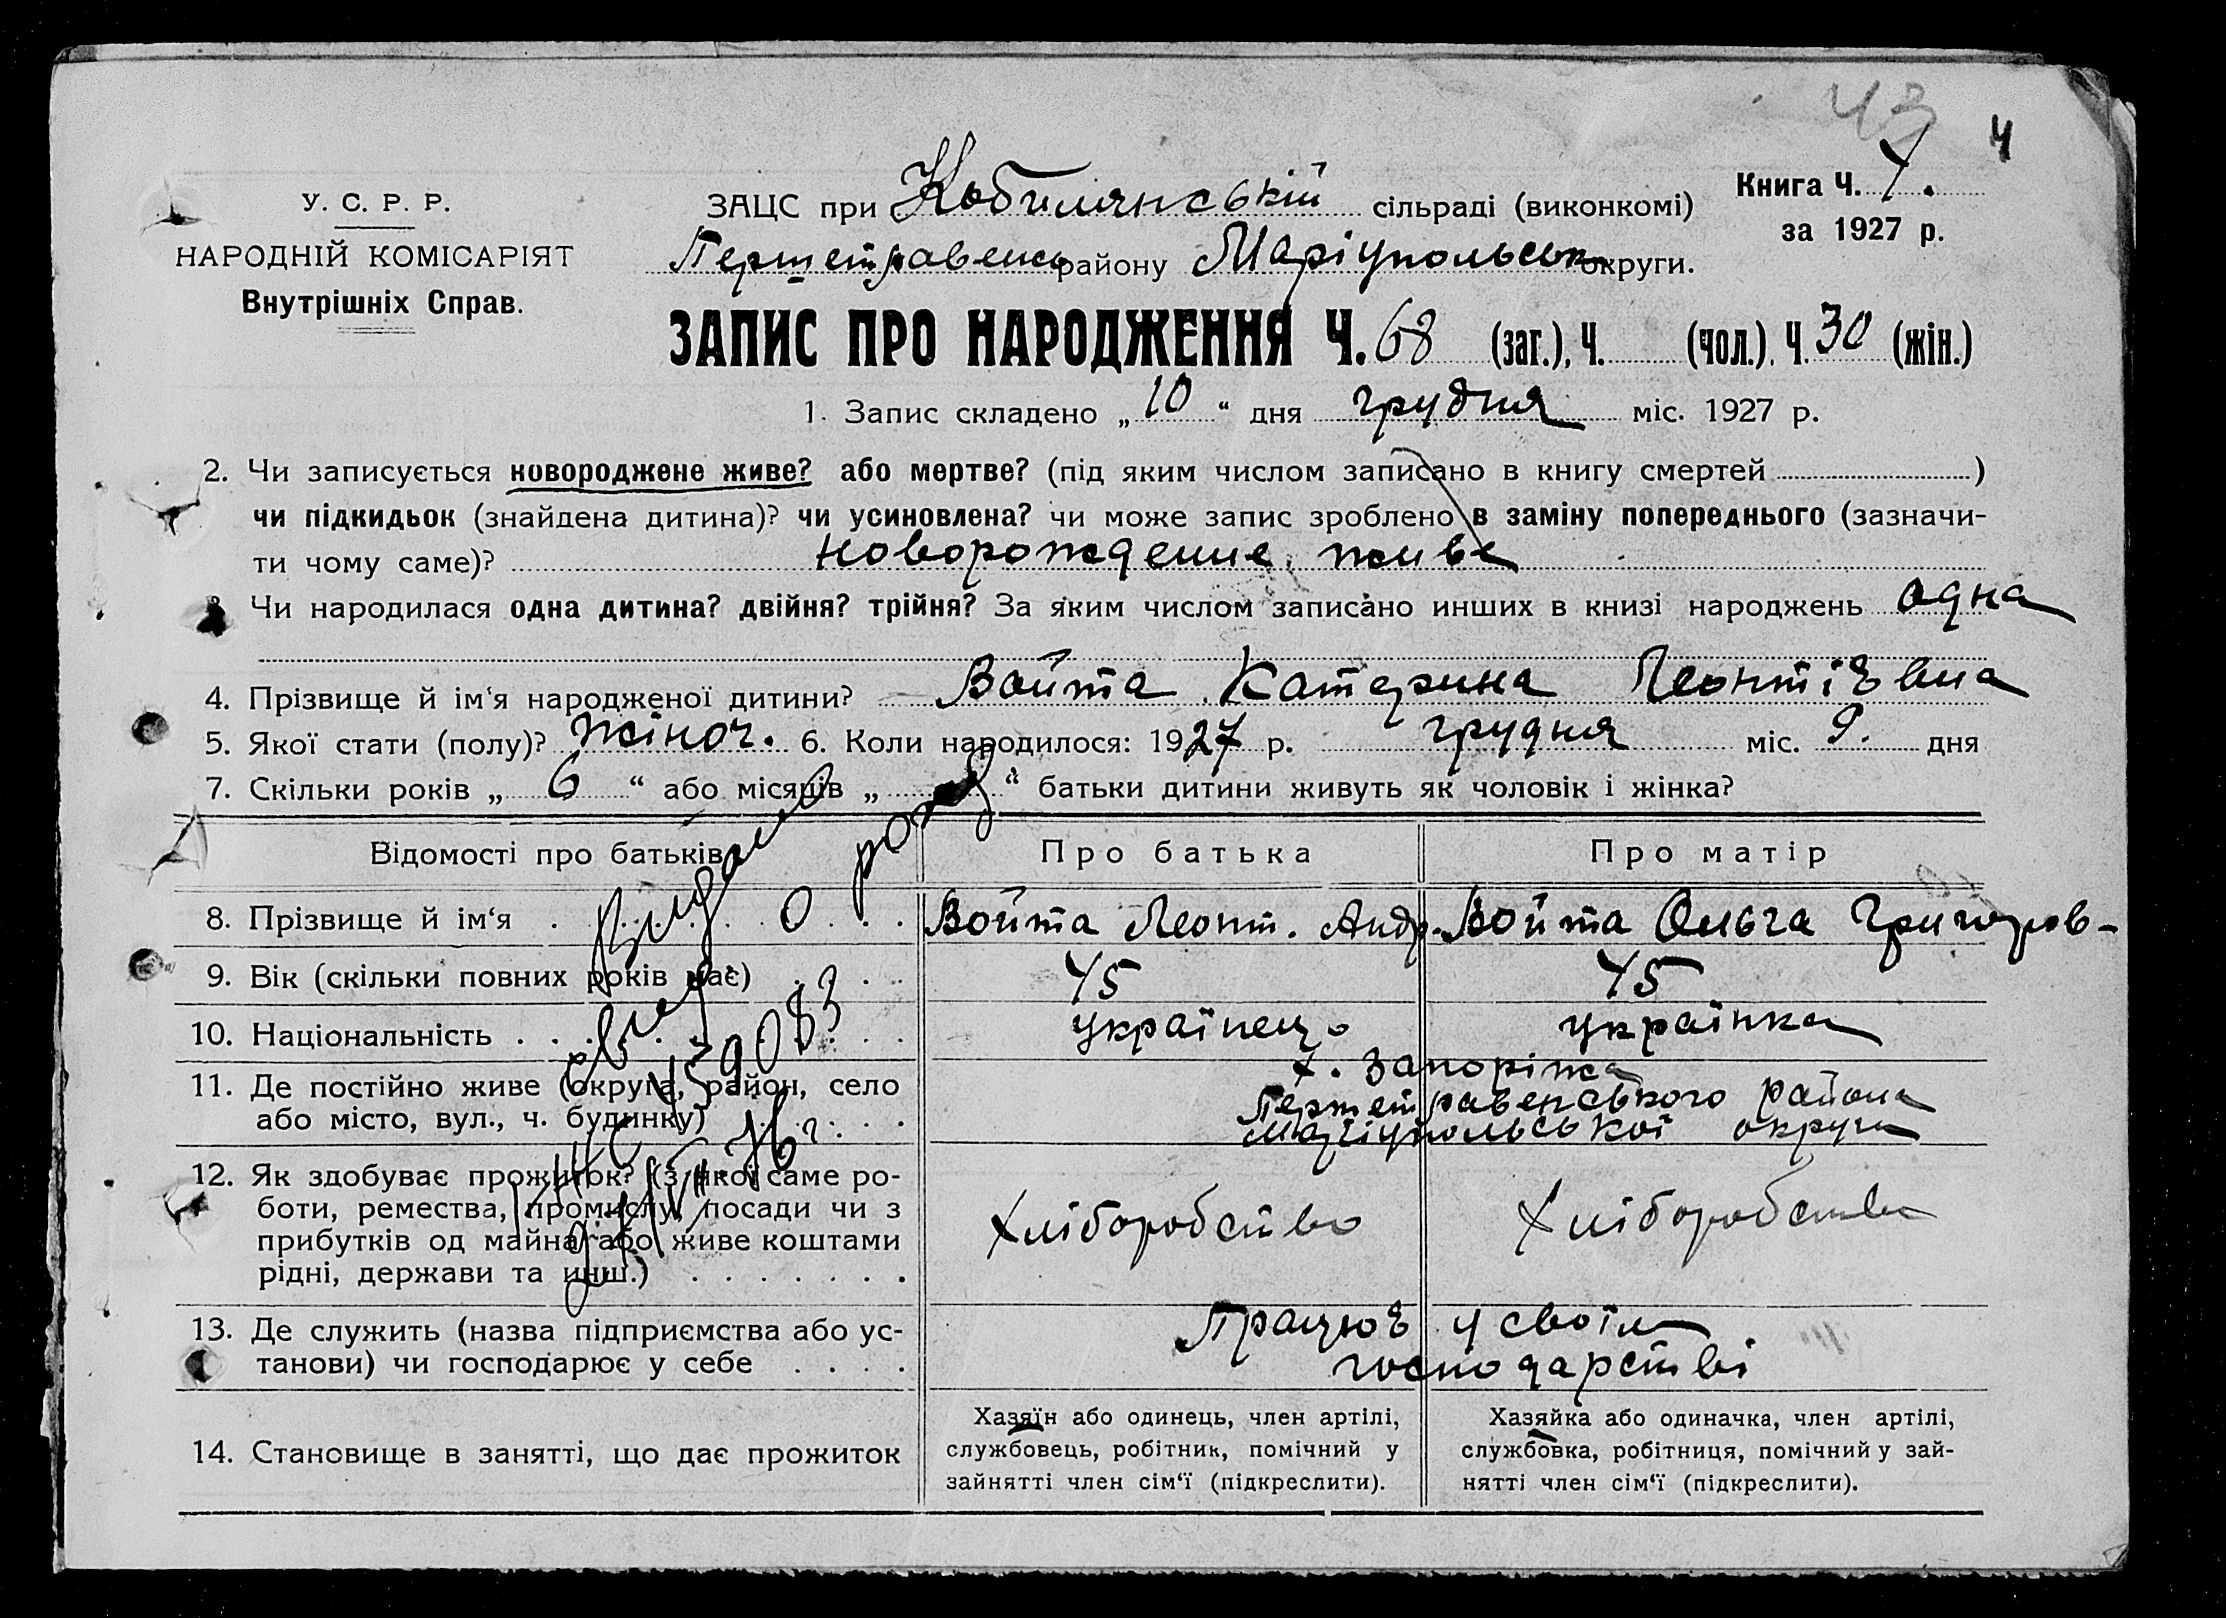 43 4
У. С. Р. Р.
НАРОДНІЙ КОМІСАРІЯТ
Внутрішніх Справ.
ЗАЦС при Кобилянській сільраді (виконкомі)
Першетравенськ району Маріупольськ округи.
Книга Ч. 1.
за 1927 р.
ЗАПИС ПРО НАРОДЖЕННЯ Ч. 68 (заг.), Ч. (чол.), Ч. 30 (жін.)
1. Запис складено „ 10 “ дня грудня міс. 1927 р.
2. Чи записується новороджене живе? або мертве? (під яким числом записано в книгу смертей )
чи підкидьок (знайдена дитина)? чи усиновлена? чи може запис зроблено в заміну попереднього (зазначи-
ти чому саме)? новорождение живе
3. Чи народилася одна дитина? двійня? трійня? За яким числом записано инших в книзі народжень одна
4. Прізвище й ім‘я народженої дитини? Войта Катерина Леонтіевна
5. Якої стати (полу)? жіноч. 6. Коли народилося: 1927 р. грудня міс. 9. дня
7. Скільки років „ 6 “ або місяців „ “ батьки дитини живуть як чоловік і жінка?
Відомості про батьків Про батька Про матір
8. Прізвище й ім‘я Войта Леонт. Андр. Войта Ольга Григоров-
9. Вік (скільки повних років має) 45 45
10. Національність українець українка
11. Де постійно живе (округа, район, село
або місто, вул., ч. будинку)
х. Запоріжа
Першетравенського района
Маріупольської округи
12. Як здобуває прожиток? (з якої саме ро-
боти, ремества, промислу, посади чи з
прибутків од майна або живе коштами
рідні, держави та инш.)
Хліборобство Хліборобство
13. Де служить (назва підприємства або ус-
танови) чи господарює у себе
Працює у своїм
господарстві
14. Становище в занятті, що дає прожиток
Хазяїн або одинець, член артілі,
службовець, робітник, помічний у
зайнятті член сім‘ї (підкреслити).
Хазяйка або одиначка, член артілі,
службовка, робітниця, помічний у зай-
нятті член сім‘ї (підкреслити).
Видано
о рожд